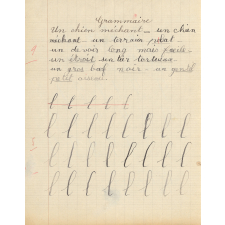 Grammaire
Un chien méchant _ un chien
méchant _ un terrain plat _
un devoir long mais facile _
un étroit sentier tortueux _
un gros bœuf noir _ un gentil
petit oiseau _
l l l l l
l l l l l l l l l
l l l l l l l l l
l l l l l l l l l